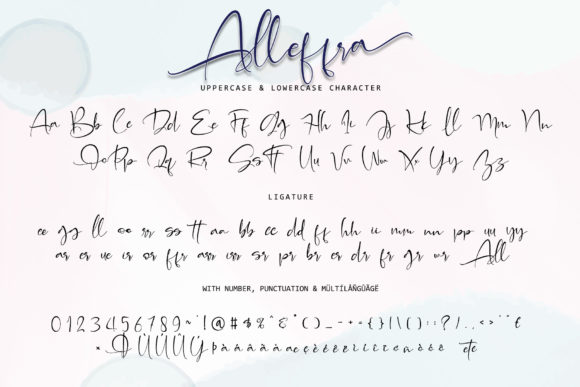 Alleffra
UPPERCASE & LOWERCASE CHARACTER
Aa Bb Cc Dd Ee Ff Gg Hh Ii Jj Kk Ll Mm Nn
Oo Pp Qq Rr Ss Tt Uu Vv Ww Xx Yy Zz
LIGATURE
ee gg ll oo rr ss tt aa bb cc dd ff hh ii mm nn pp uu yy
ar er ue ir or ffr arr irr sr pr br er dr fr gr wr All
WITH NUMBER, PUNCTUATION & MÜLTÍLÀÑGÜÃGÈ
0 1 2 3 4 5 6 7 8 9 ~ ! @ # $ % ^ & * ( ) _ - + = { } | \ ( ) : ; ? / . , < >
etc